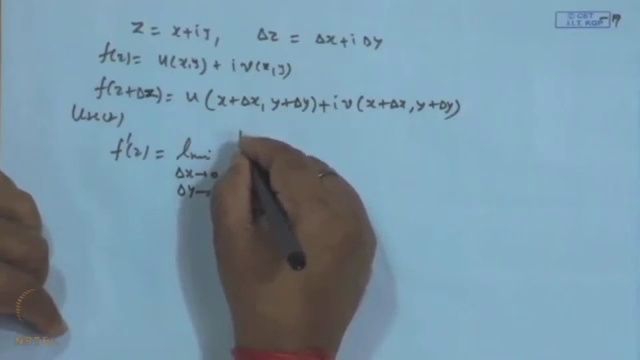 © CET
I.I.T. KGP
z = x+iy, Δz = Δx+iΔy
f(z) = u(x,y) + i v(x,y)
f(z+Δz) = u(x+Δx, y+Δy) + i v(x+Δx, y+Δy)
f'(z) =
Δx→0
Δy→
NPTEL